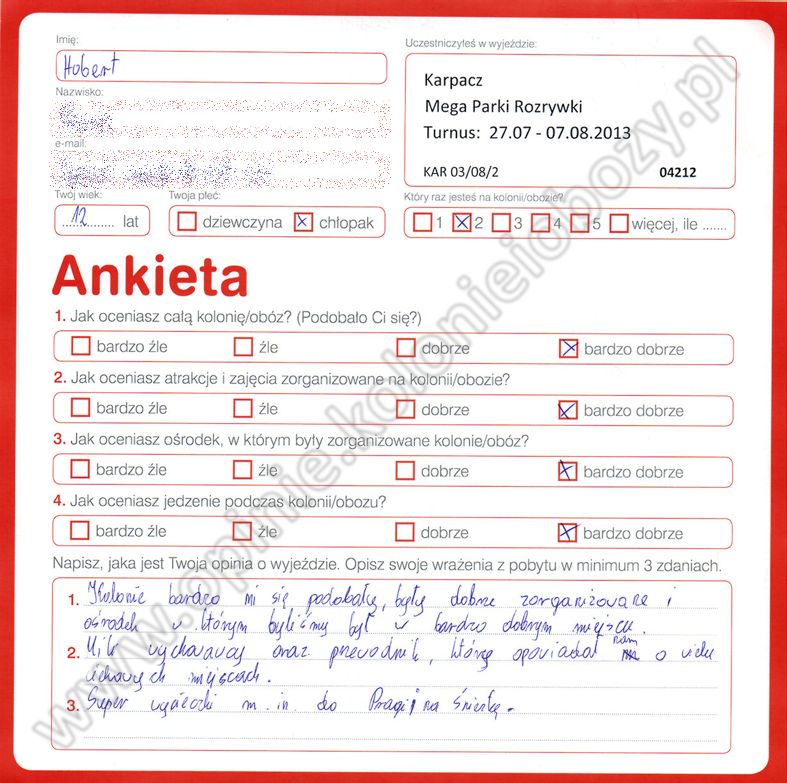 Imię:
Uczestniczyłeś w wyjeździe:
Hubert
Karpacz
Mega Parki Rozrywki
Turnus: 27.07 - 07.08.2013
KAR 03/08/2
04212
Nazwisko:
e-mail:
Twój wiek:
Twoja płeć:
Który raz jesteś na kolonii/obozie?
12 lat
dziewczyna chłopak
1 2 3 4 5 więcej, ile .......
Ankieta
1. Jak oceniasz całą kolonię/obóz? (Podobało Ci się?)
bardzo źle źle dobrze bardzo dobrze
2. Jak oceniasz atrakcje i zajęcia zorganizowane na kolonii/obozie?
bardzo źle źle dobrze bardzo dobrze
3. Jak oceniasz ośrodek, w którym były zorganizowane kolonie/obóz?
bardzo źle źle dobrze bardzo dobrze
4. Jak oceniasz jedzenie podczas kolonii/obozu?
bardzo źle źle dobrze bardzo dobrze
Napisz, jaka jest Twoja opinia o wyjeździe. Opisz swoje wrażenia z pobytu w minimum 3 zdaniach.
1. Kolonie bardzo mi się podobały, były dobrze zorganizowane i
ośrodek w którym byliśmy był w bardzo dobrym miejscu.
2. Mili wychowawcy oraz przewodnik, który opowiadał nam o wielu
ciekawych miejscach.
3. Super wycieczki m.in. do Pragi i na Śnieżkę.
www.opinie.kolonieiobozy.pl